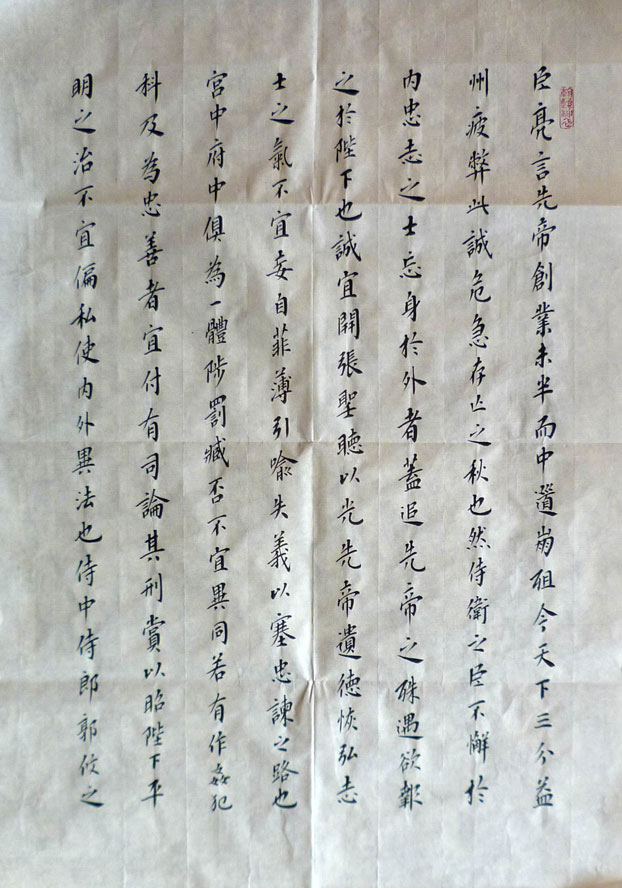 臣亮言先帝創業未半而中道崩殂今天下三分益
州疲弊此誠危急存亡之秋也然侍衛之臣不懈於
內忠志之士忘身於外者蓋追先帝之殊遇欲報
之於陛下也誠宜開張聖聽以光先帝遺德恢弘志
士之氣不宜妄自菲薄引喻失義以塞忠諫之路也
宮中府中俱為一體陟罰臧否不宜異同若有作姦犯
科及為忠善者宜付有司論其刑賞以昭陛下平
明之治不宜偏私使內外異法也侍中侍郎郭攸之